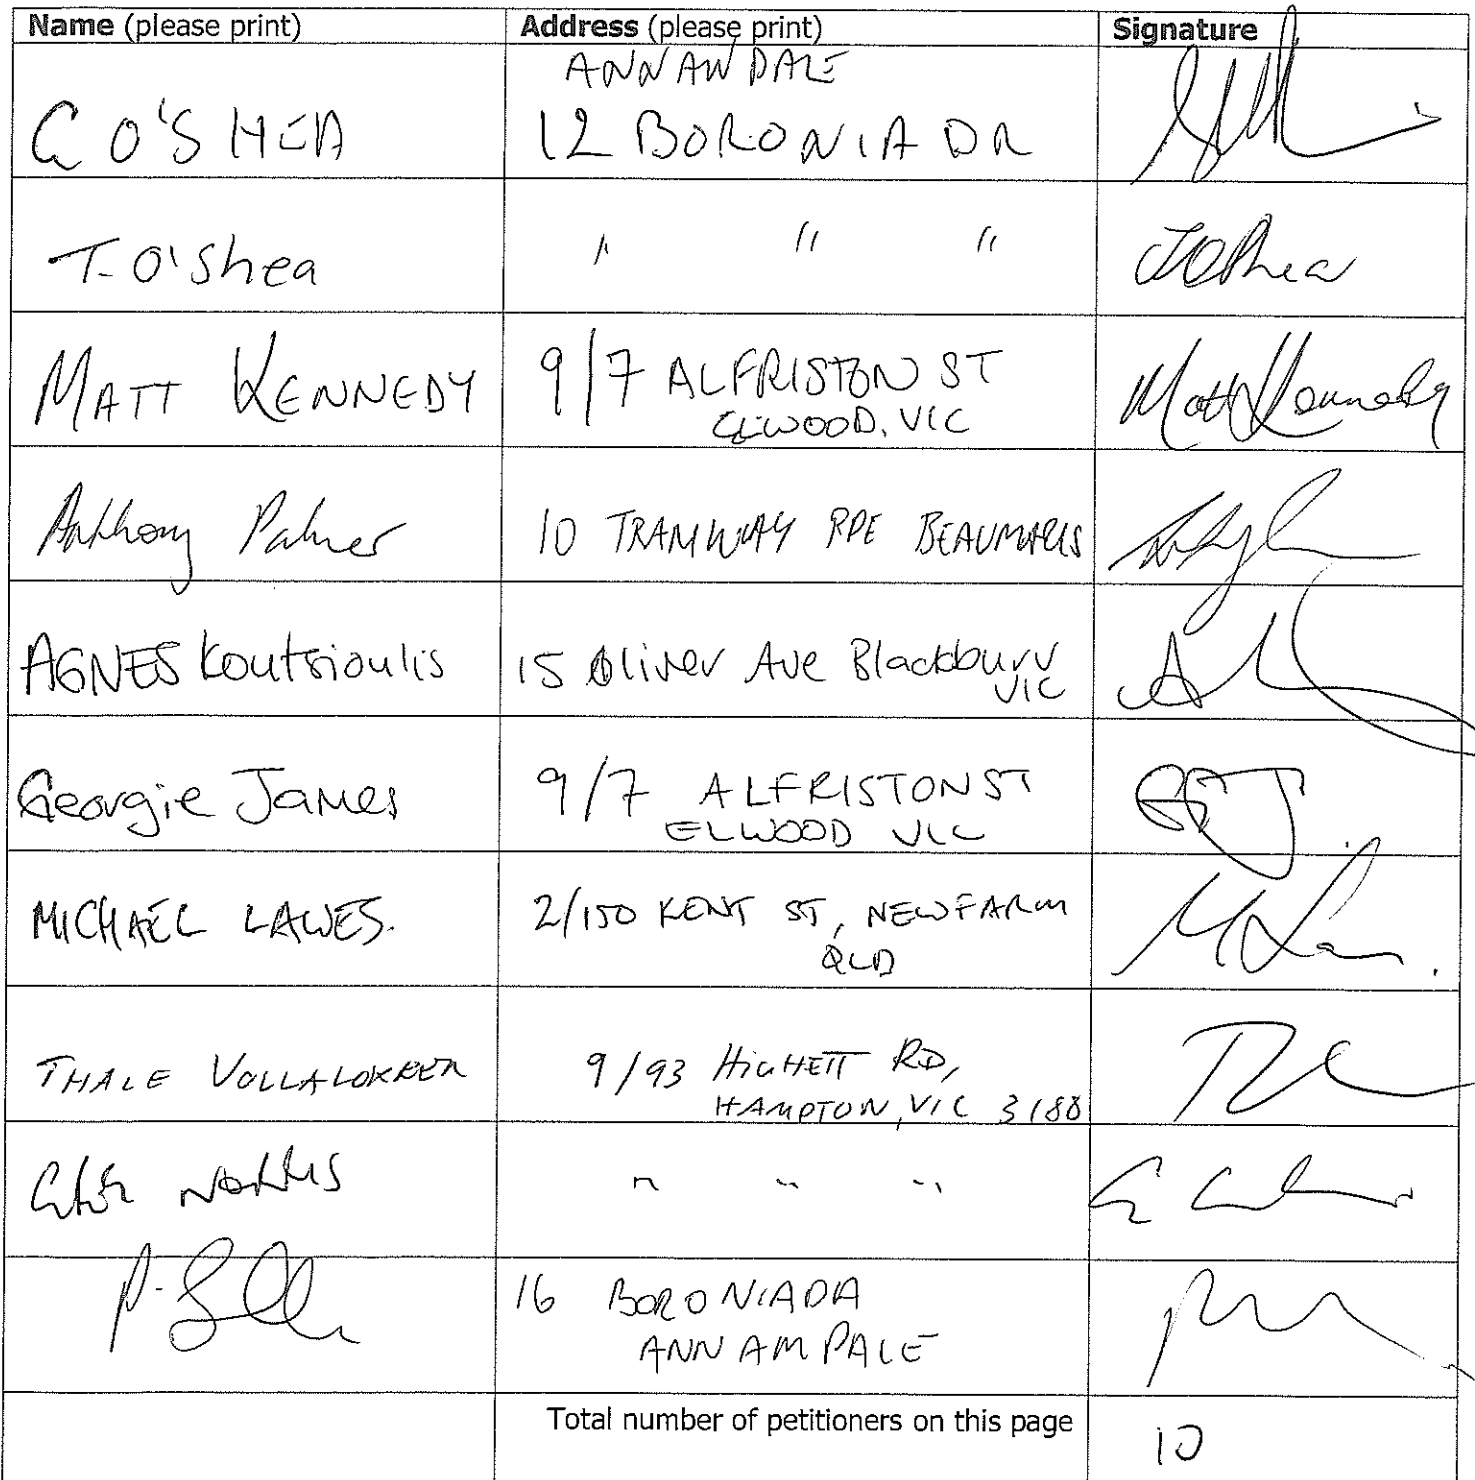 Name (please print) Address (please print) Signature
ANNANDALE
G O'SHEA 12 BORONIA DR
T. O'Shea " " " TO'Shea
MATT KENNEDY 9/7 ALFRISTON ST Matt Kennedy
ELWOOD, VIC
Anthony Palmer 10 TRAMWAY PDE BEAUMARIS
AGNES Koutsioulis 15 Oliver Ave Blackburn
VIC
Georgie James 9/7 ALFRISTON ST GJ.
ELWOOD VIC
MICHAEL LAWES. 2/150 KENT ST, NEWFARM
QLD
THALE VOLLALOKKEN 9/93 HIGHETT RD,
HAMPTON, VIC 3188
NORRIS " " "
16 BORONIA DR
ANNANDALE
Total number of petitioners on this page 10